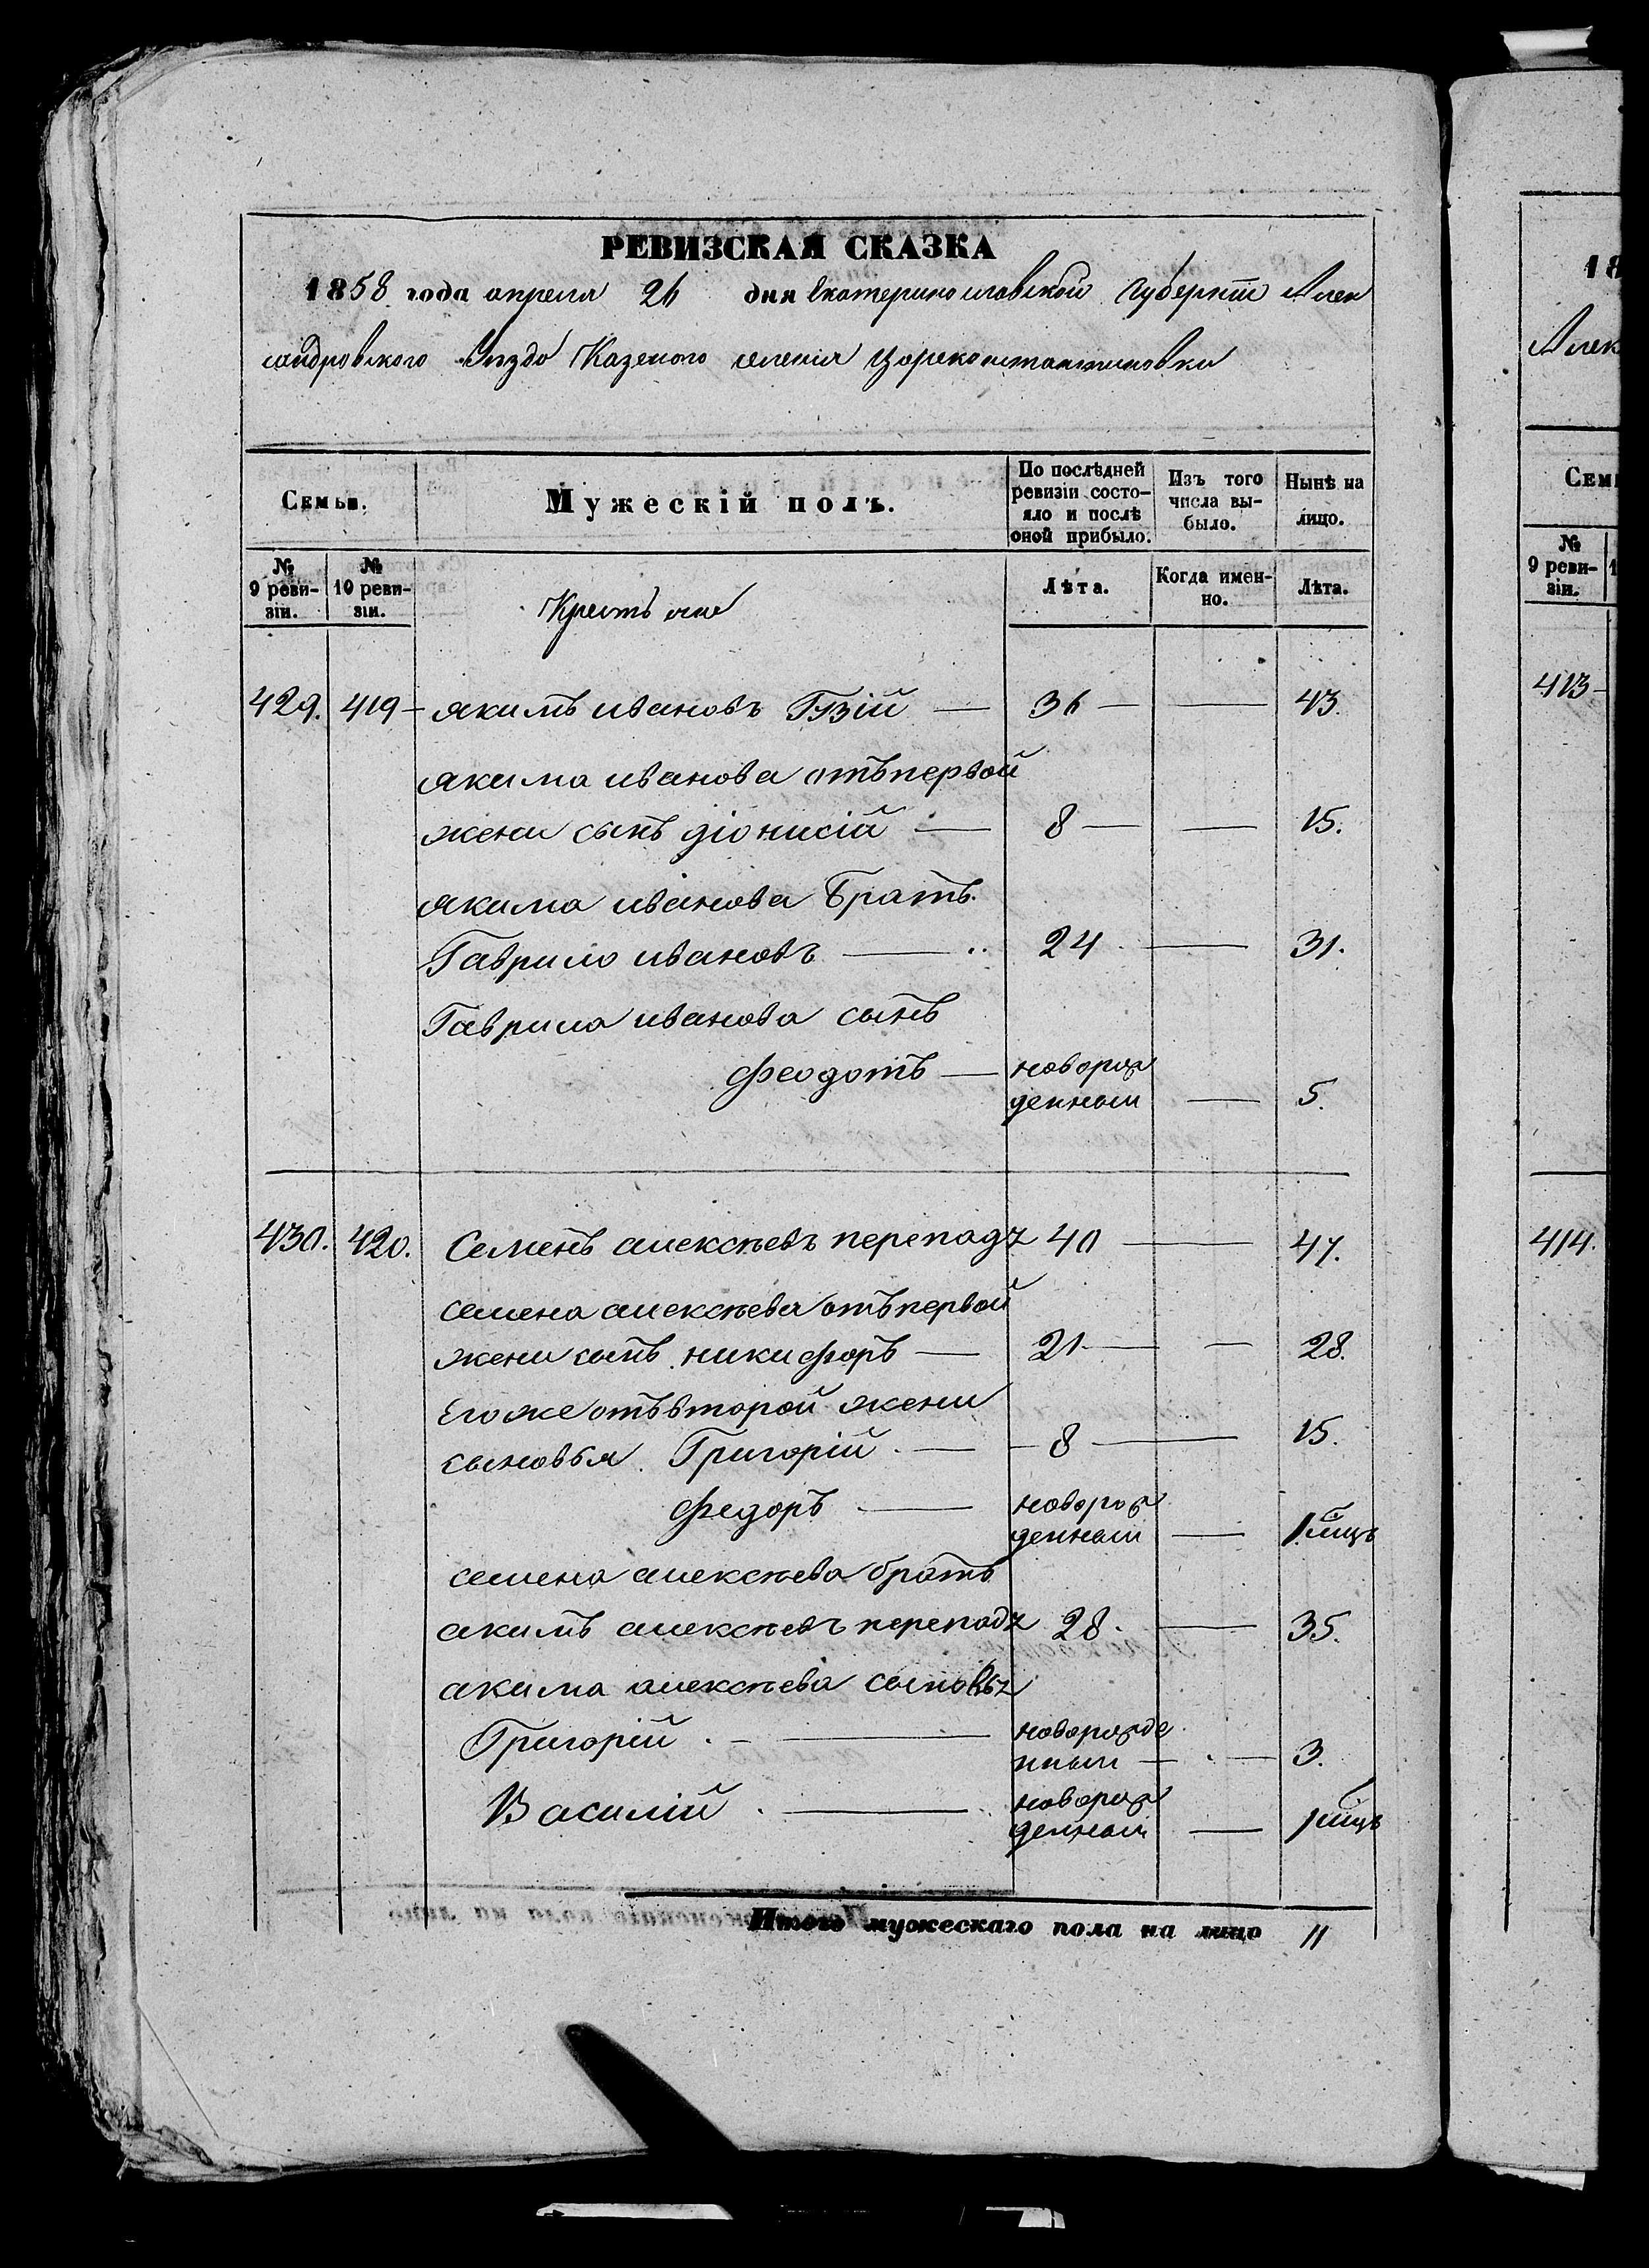 РЕВИЗСКАЯ СКАЗКА
1858 года апреля 26 дня Екатеринославской Губерніи Алек
сандровского Уѣзда Казеного селенія Цареконстантиновки
Семьи.
Мужескій полъ.
По послѣдней ревизіи состо-
яло и послѣ
оной прибыло.
Изъ того
числа вы-
было.
Нынѣ на
лицо.
№
9 реви-
зіи.
№
10 реви-
зіи.
Крестьяне
Лѣта.
Когда имен-
но.
Лѣта.
429. 419 якимъ ивановъ Гузій — 36 — — 43.
якима иванова отъ первой
жени сынъ діонисій — 8 — — 15.
якима иванова Братъ.
Гаврило ивановъ — 24 — 31.
Гаврила иванова сынъ
Феодотъ — новорож
денный — 5.
430. 420. Семенъ алексѣевъ перепадя 40 — 47.
семена алексѣева отъ первой
жени сынъ никифоръ — 21 — — 28.
Его же отъ второй жени
сыновья Григорій — 8 — 15.
Федоръ — новорож
денный — 1 мцъ
семена алексѣева братъ
акимъ алексѣевъ перепадя 28. — 35.
акима алексѣева сыновья
Григорій — новорожде
нный — 3.
Василій — новорож
денный — 1 мцъ
Итого мужескаго пола на лицо 11
18
Алек
Семь
№
9 реви-
зіи.
413
414.